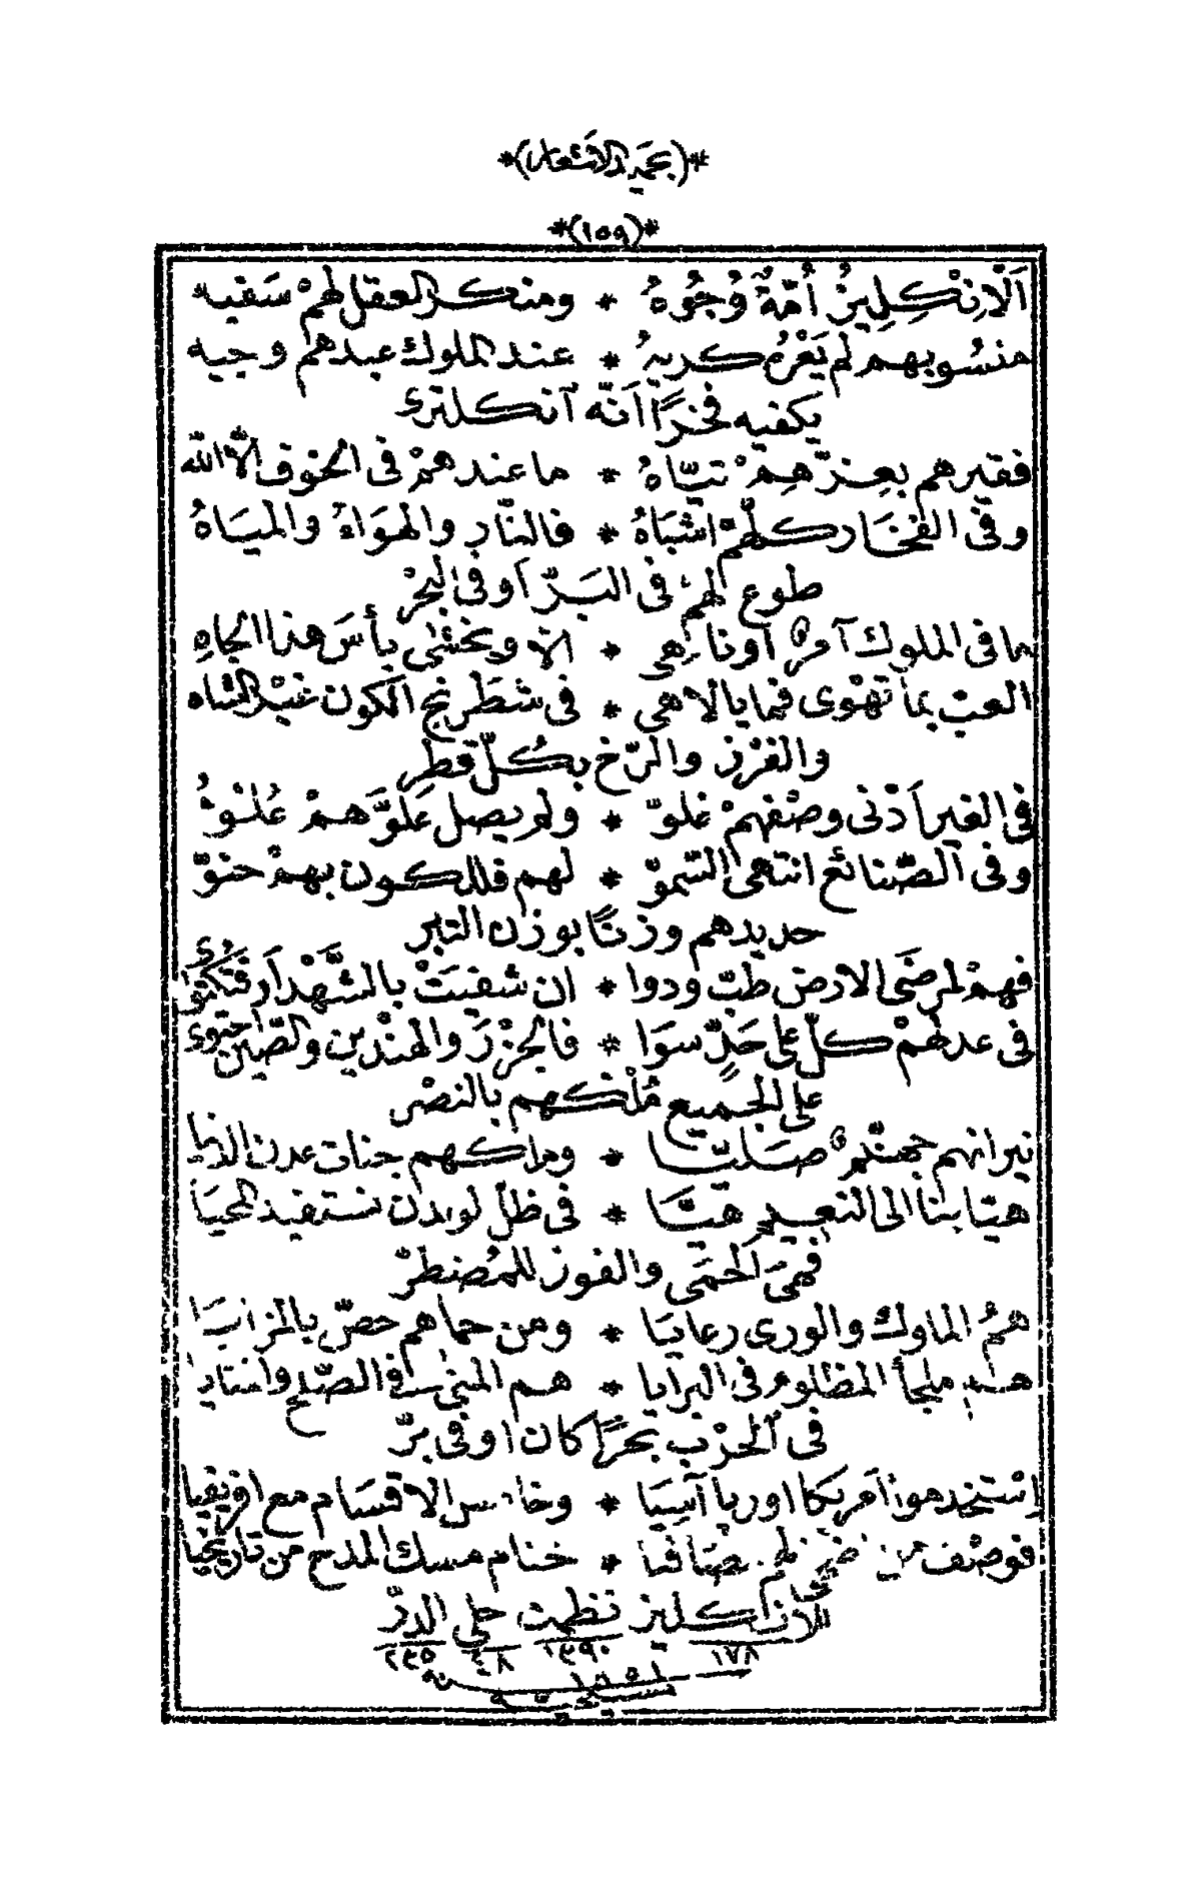 *(بحميد الاشعار)*
*(١٥٩)*
اَلْاِنْكِلِيزُ اُمَّةٌ وُجُوهُ * ومنكر العقل لهمْ سَفيه
منسُوبهم لم يَعْرُه كريهُ * عند الملوك عبدهم وجيه
يكفيه فخرًا اَنّه آنكلترى
فقيرهم بعِزّهِمْ تيّاهُ * ما عندهمْ فى الخوف الّا الله
وفى الفخَار كلّهمْ اشبَاهُ * فالنّار والهوَاءُ والميَاهُ
طوع لهم فى البَرّ اَو فى البحْرِ
ما فى الملوك آمرٌ اَو ناهِى * الّا ويخشٰى بأسَ هذا الجاهِ
العبْ بما تهْوى فما يا لاهى * فى شطَرنج الكون غيْر الشاه
والفرْز والرّخ بكُلّ قطِر
فى الغير اَدْنى وصْفهمْ غلوّ * ولم يصل عَلوَّهمْ عُلوُّ
وفى الصّنائع انتهى السّموّ * لهم فللكون بهمْ حنوّ
حديدهم وزنًا بوزن التبر
فهمْ لمرضَى الارض طبّ ودوا * ان شفيَتْ بالشَّهْد اَو
فى عدلهمْ كلّ على حَدٍّ سَوَا * فالجزْرَ والهنْد والصّين احتوى
على الجميع مُلْكهم بالنصْر
نيرانهم جهنّمٌ صَليّا * وملكهم جنات عدن
هيّا بنا الى النعيم هيَّا * فى ظلّ لوندن نستفيد المحيَا
فهىَ الحمَى والفوز للمُضطرّ
همُ الملوك والورى رعايَا * ومن حماهم خصّ بالمزايَا
هم ملجأ المظلوم فى البرايا * هم فى الصّلح
فى الحرْب بحرًا كان او فى برّ
اِسْتخدموا اَمريكا اوربا آسِيَا * وخامس الاقسَام مع افريقيا
فوصْف من * ختام مسك المدح من تاريخيا
للانكليز نظمت حلى الدرّ
١٧٨ ١٣٩٠ ٤٨ ٢٣٥